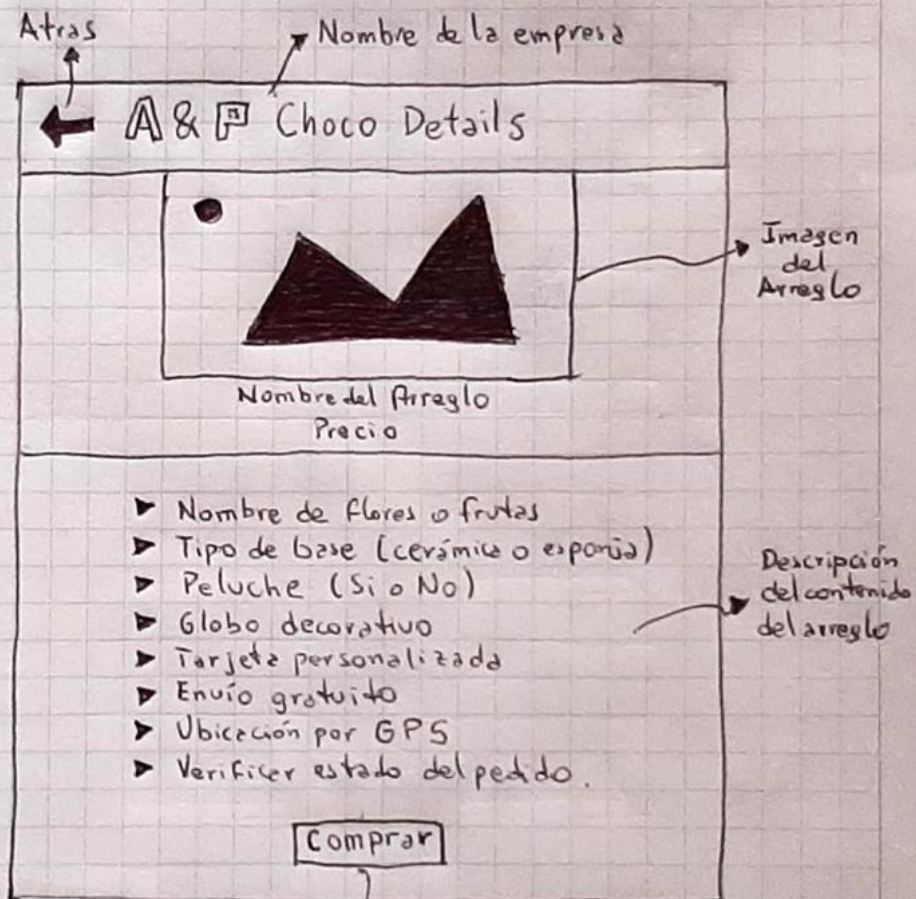 Atras
Nombre de la empresa
A & P Choco Details
Imagen
del
Arreglo
Nombre del Arreglo
Precio
Nombre de flores o frutas
Tipo de base (cerámica o esponja)
Peluche (Si o No)
Globo decorativo
Tarjeta personalizada
Envío gratuito
Ubicación por GPS
Verificar estado del pedido.
Descripción
del contenido
del arreglo
Comprar